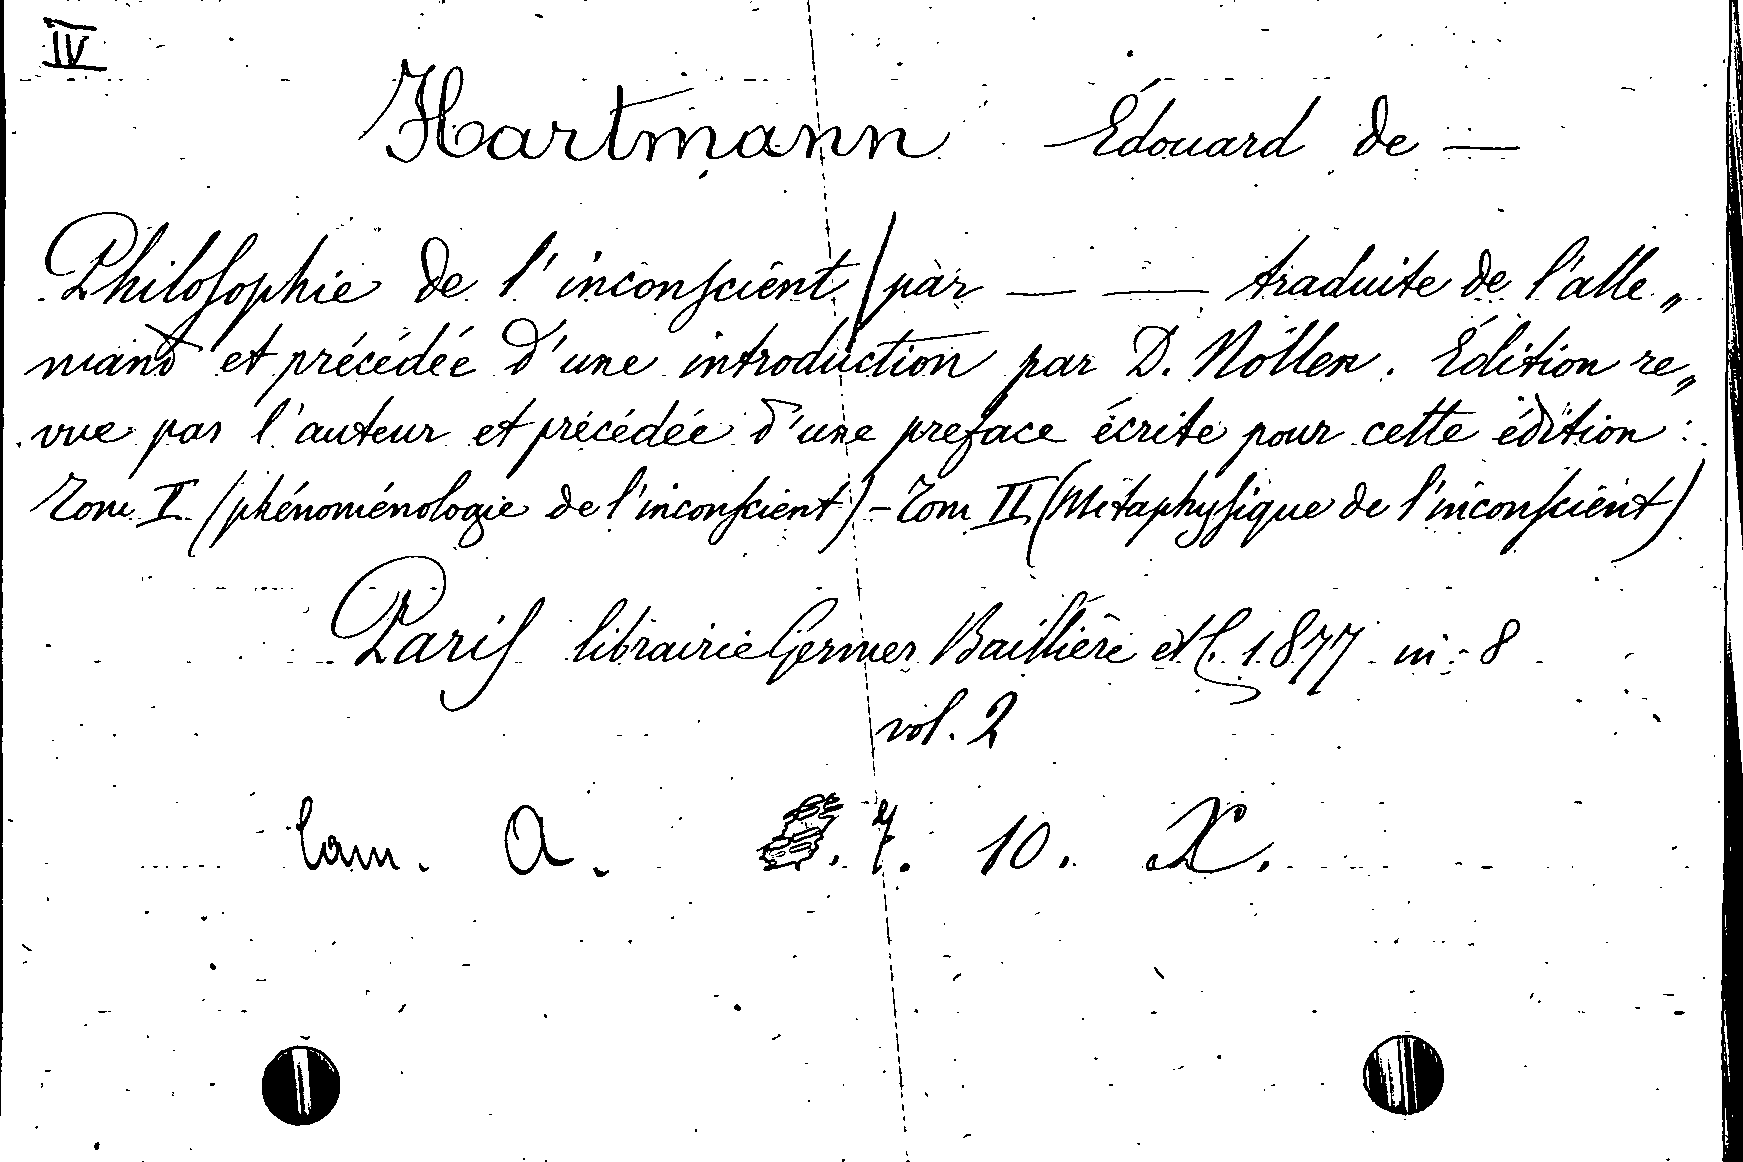 IV
Hartmann Édouard de —
Philosophie de l'inconscient / par — — traduite de l'alle„
mand et précédée d'une introduction par D. Nollen. Édition re„
vue par l'auteur et précédée d'une preface écrite pour cette édition :
Tom I. (phénoménologie de l'inconscient) – Tom II (Métaphysique de l'inconscient)
Paris librairie Germer Baillière et C. 1877 in-8
vol. 2
Cam. A. 7. 10. X.